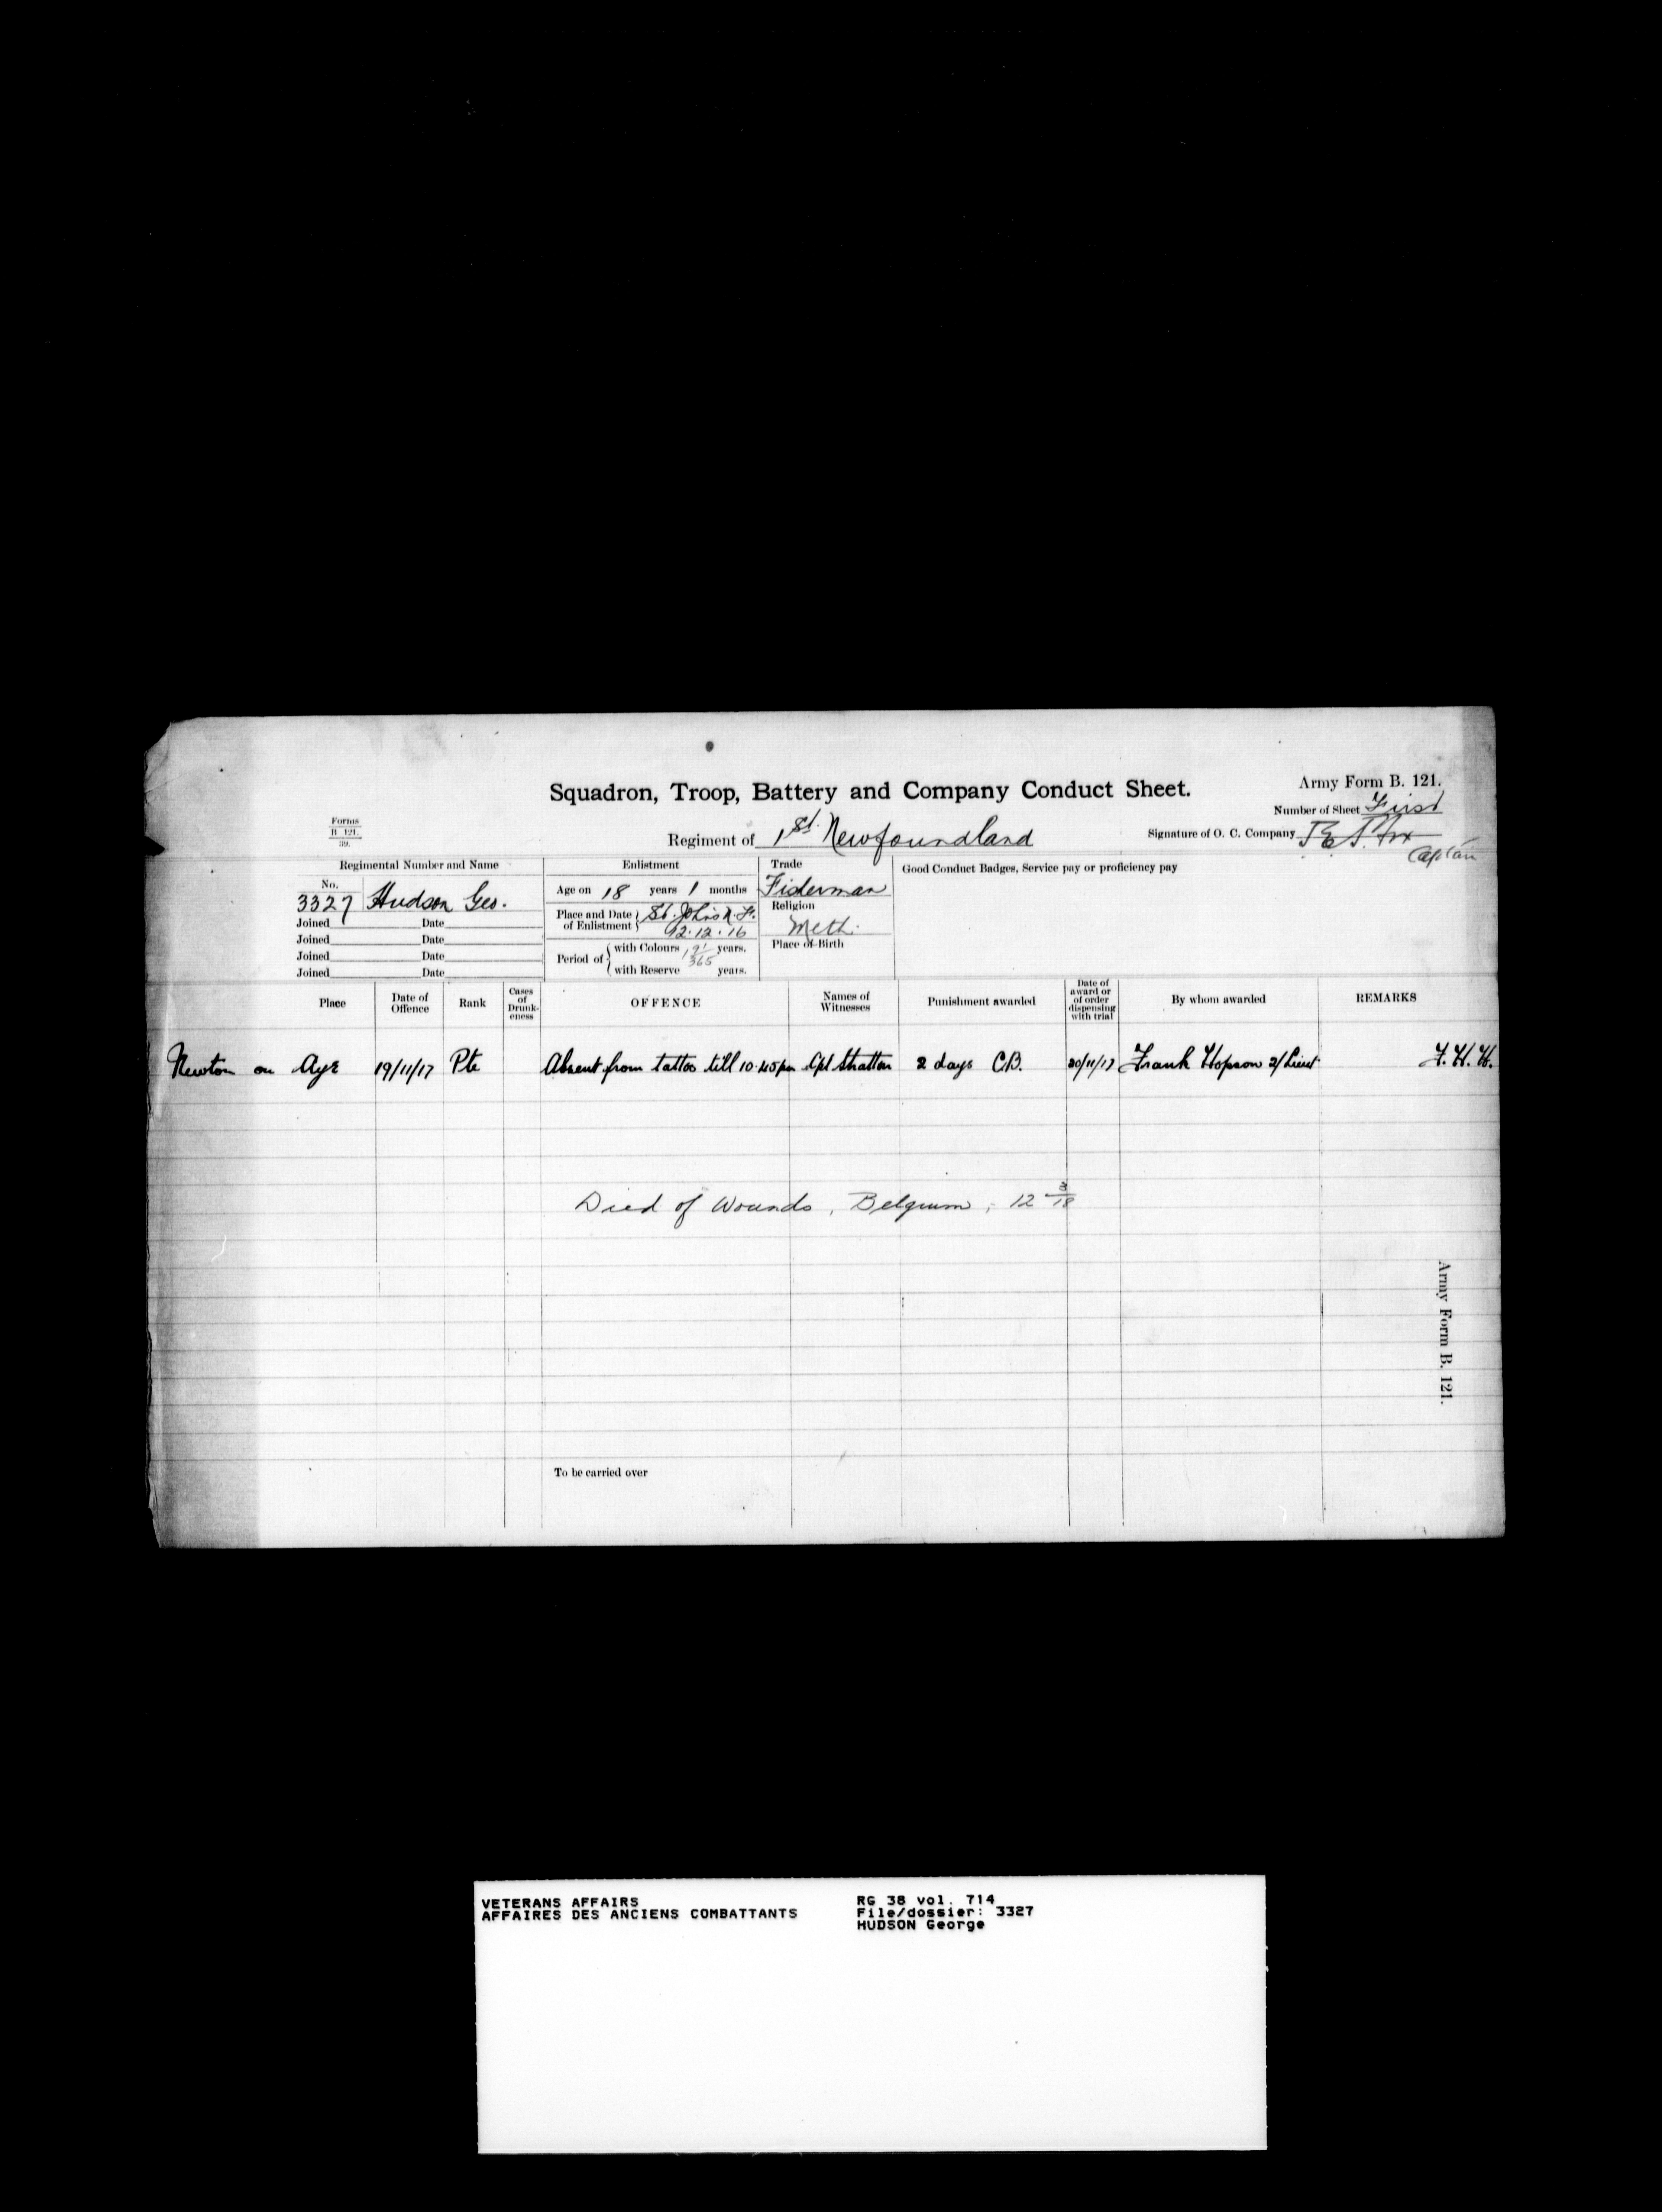 Army Form B. 121.
Squadron, Troop, Battery and Company Conduct Sheet.
Number of Sheet First
Forms
B 121.
39.
Regiment of 1st. Newfoundland
Signature of O. C. Company
Captain
Regimental Number and Name
No.
3327 Hudson Geo.
Joined Date
Joined Date
Joined Date
Joined Date
Enlistment
Age on 18 years 1 months
Place and Date of Enlistment St. John's N. F.
12.12.16
Period of with Colours 1 91/365 years.
with Reserve years.
Trade
Fisherman
Religion
Meth.
Place of Birth
Good Conduct Badges, Service pay or proficiency pay
Place
Date of Offence
Rank
Cases of Drunk-eness
OFFENCE
Names of Witnesses
Punishment awarded
Date of award or of order dispensing with trial
By whom awarded
REMARKS
Newton on Ayr 19/11/17 Pte Absent from tattoo till 10.45pm Cpl Stratton 2 days C.B. 20/11/17 Frank Hopson 2/Lieut. F. H. H.
Died of Wounds, Belgium, 12 3/18
Army Form B. 121.
To be carried over
VETERANS AFFAIRS
AFFAIRES DES ANCIENS COMBATTANTS
RG 38 vol. 714
File/dossier: 3327
HUDSON George